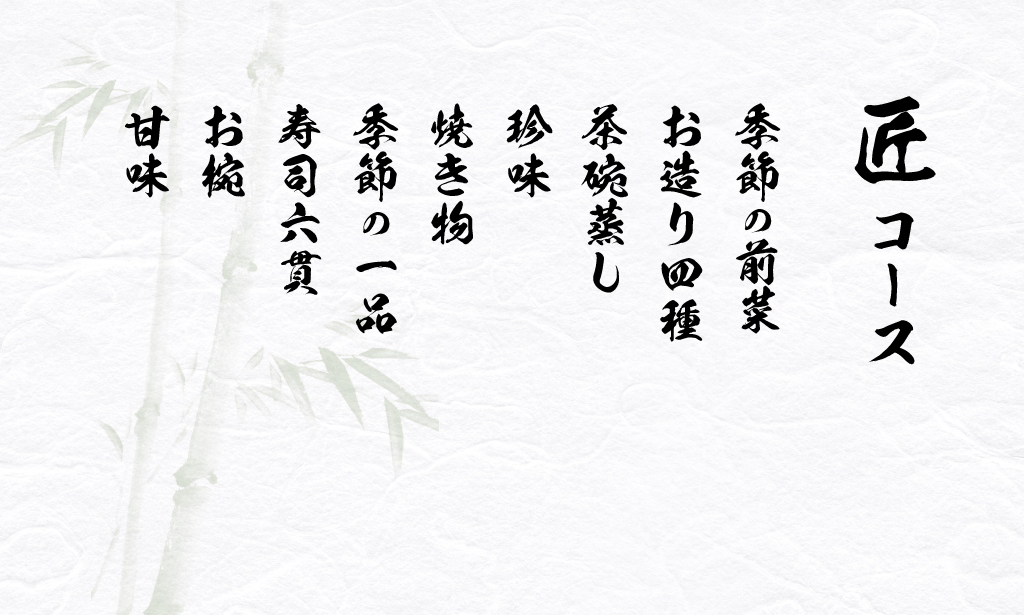 匠コース
季節の前菜
お造り四種
茶碗蒸し
珍味
焼き物
季節の一品
寿司六貫
お椀
甘味